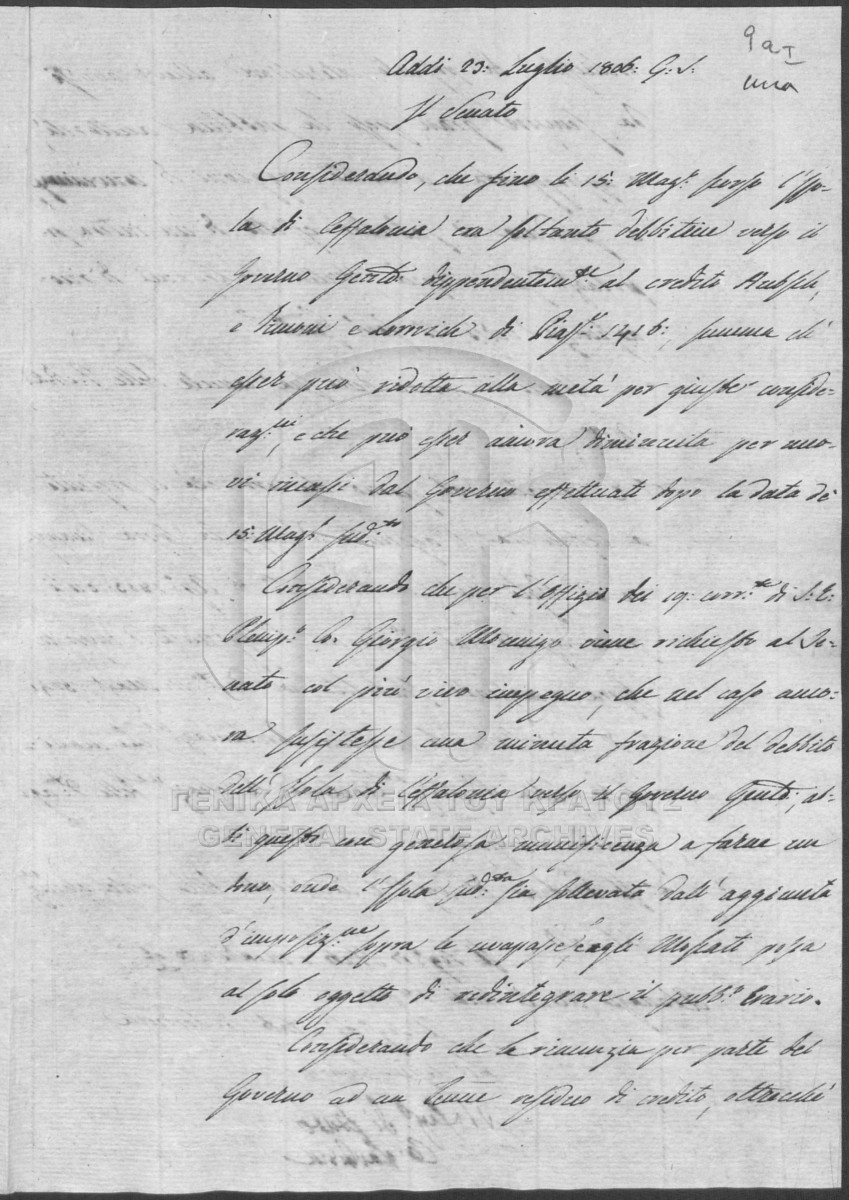 9 a I
una
Addì 23: Luglio 1806. G: S:
Il Senato
Considerando, che fino li 15: Mag.º scorso l'Iso-
la di Ceffalonia era soltanto debbitrice verso il
Governo Gen.le dippendentem.te al credito Hubsch,
e Timoni e di Pias.e 1416:, summa ch'
esser può ridotta alla metà per giuste conside-
raz.ni, e che può esser ancora diminuita per nuo-
vi incassi dal Governo effettuati dopo la data de
15: Mag.º sud.to
Considerando che per l'Offizio dei 19: corr.te di S: E:
Plenip.º Co: Giorgio Mocenigo viene richiesto al Se-
nato col più vivo impegno, che nel caso anco-
ra sussistesse una minuta frazione del debbito
dell'Isola di Ceffalonia verso il Governo Gen.le, ab-
bi questi con generosa munificenza a farne un
dono, onde l'Isola sud.ta sia sollevata dall'aggiunta
d'imposiz.ne sopra le uvapasse, e agli Moscati posta
al solo oggetto di redintegrare il pubb.º Erario.
Considerando che la rinunzia per parte del
Governo ad un lieve residuo di credito, oltrecchè
ΓΕΝΙΚΑ ΑΡΧΕΙΑ ΤΟΥ ΚΡΑΤΟΥΣ
GENERAL STATE ARCHIVES